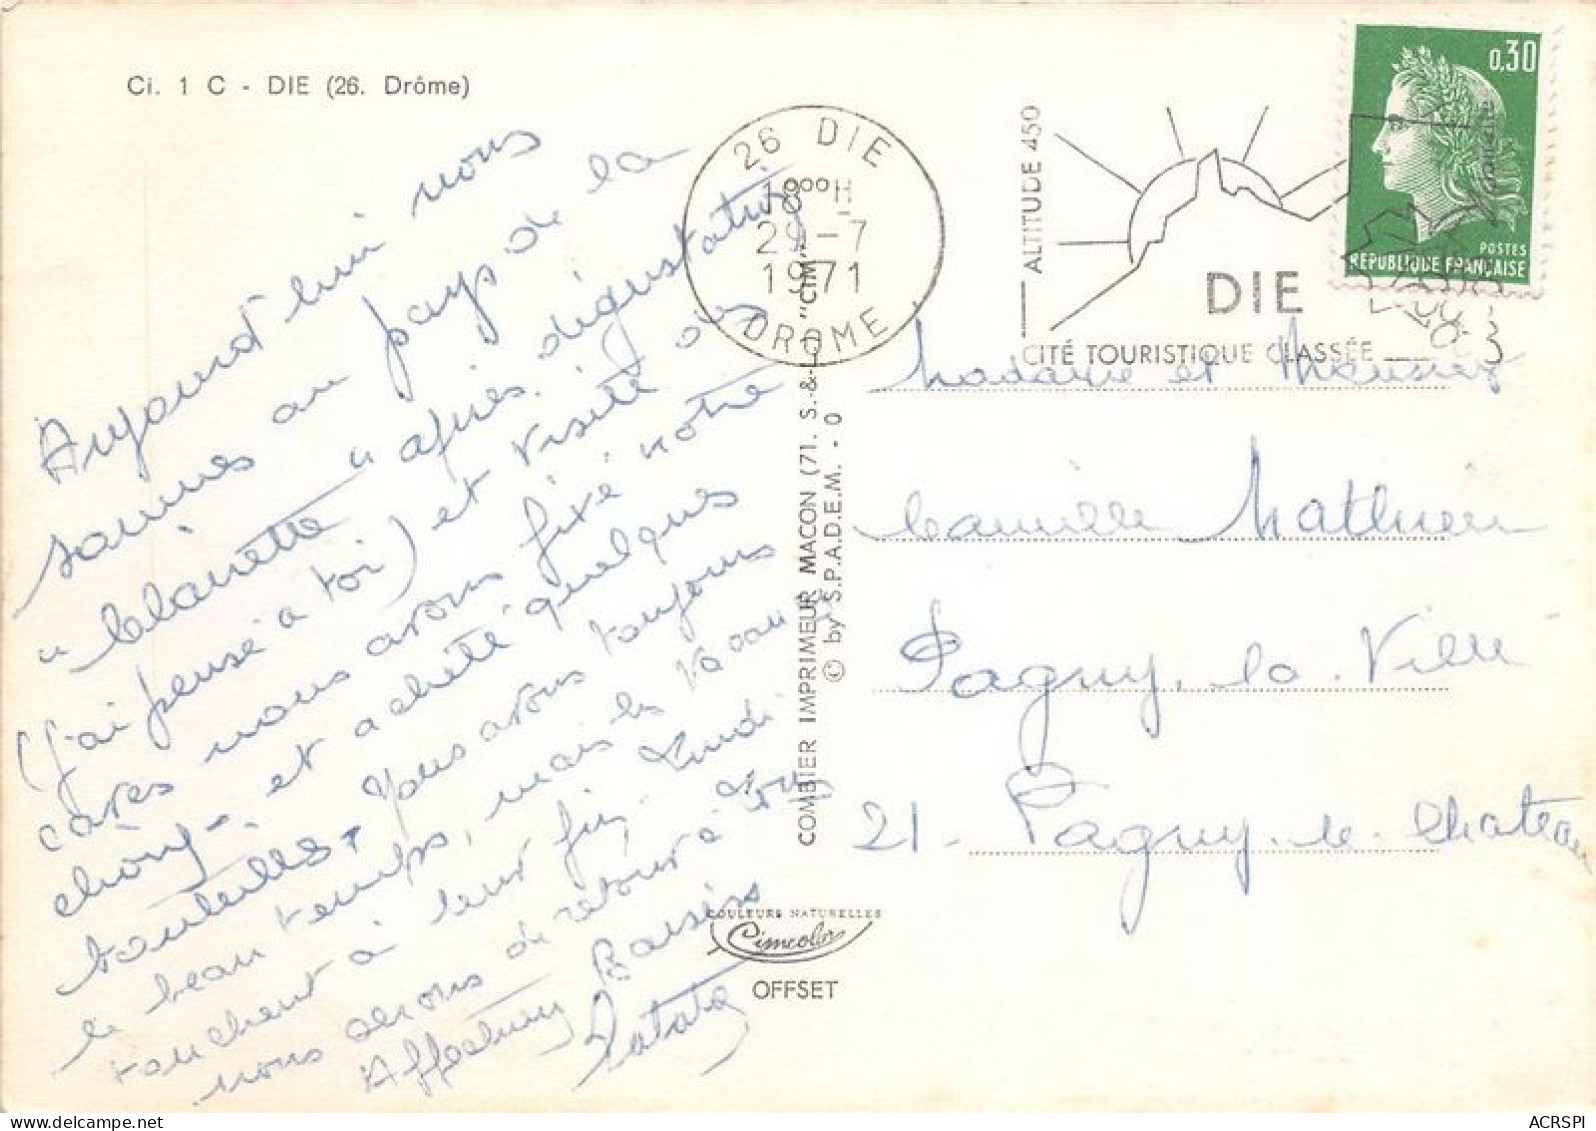 Ci. 1 C - DIE (26. Drôme)
Aujourd'hui nous
sommes au pays de la
"Clairette" après dégustation
(j'ai pensé à toi) et visite des
caves nous avons fixé notre
choix - et acheté quelques
bouteilles. Nous avons toujours
le beau temps, mais les vacances
touchent à leur fin, Lundi
nous serons de retour à
Affectueux Baisers
Tatata
COMBIER IMPRIMEUR MACON (71. S.-&-L.) "CIM"
© by S.P.A.D.E.M. - 0
COULEURS NATURELLES
Cimcolor
OFFSET
26 DIE
18H
29-7
1971
DROME
ALTITUDE 450
DIE
CITÉ TOURISTIQUE CLASSÉE
0,30
POSTES
REPUBLIQUE FRANÇAISE
Madame et Monsieur
Camille Mathieu
Pagny. la. Ville
21 - Pagny. le. Chateau
ACRSPI